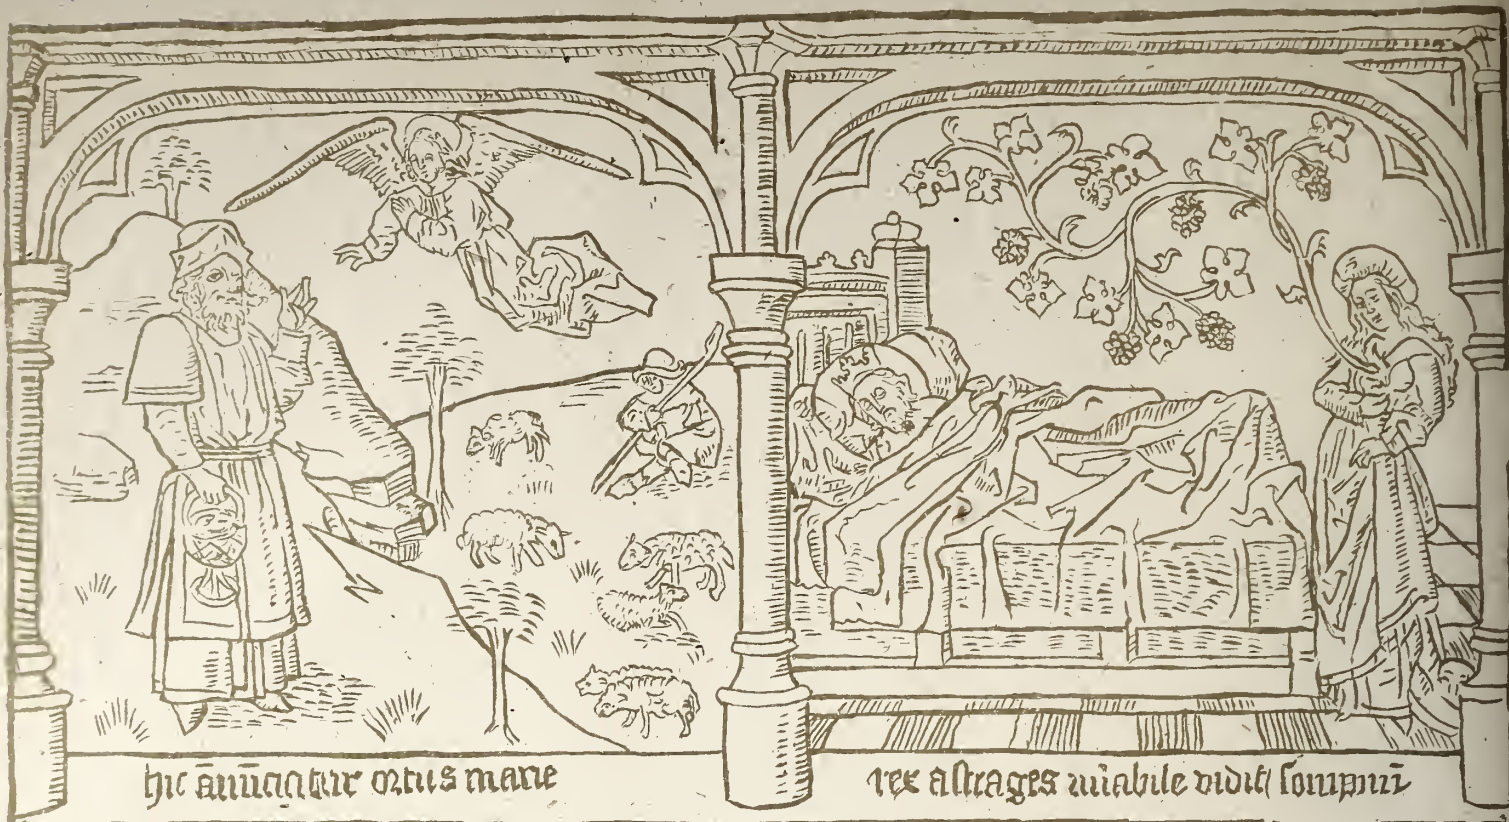 hic ānūciatur ortus marie
rex astrages mīabile vidit sompnū